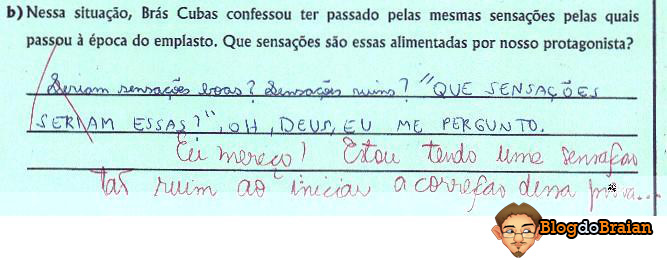 b) Nessa situação, Brás Cubas confessou ter passado pelas mesmas sensações pelas quais
passou à época do emplasto. Que sensações são essas alimentadas por nosso protagonista?
Seriam sensações boas? Sensações ruins? "QUE SENSAÇÕES
SERIAM ESSAS?", OH, DEUS, EU ME PERGUNTO.
Eu mereço! Estou tendo uma sensação
tão ruim ao iniciar a correção dessa prova...
BlogdoBraian